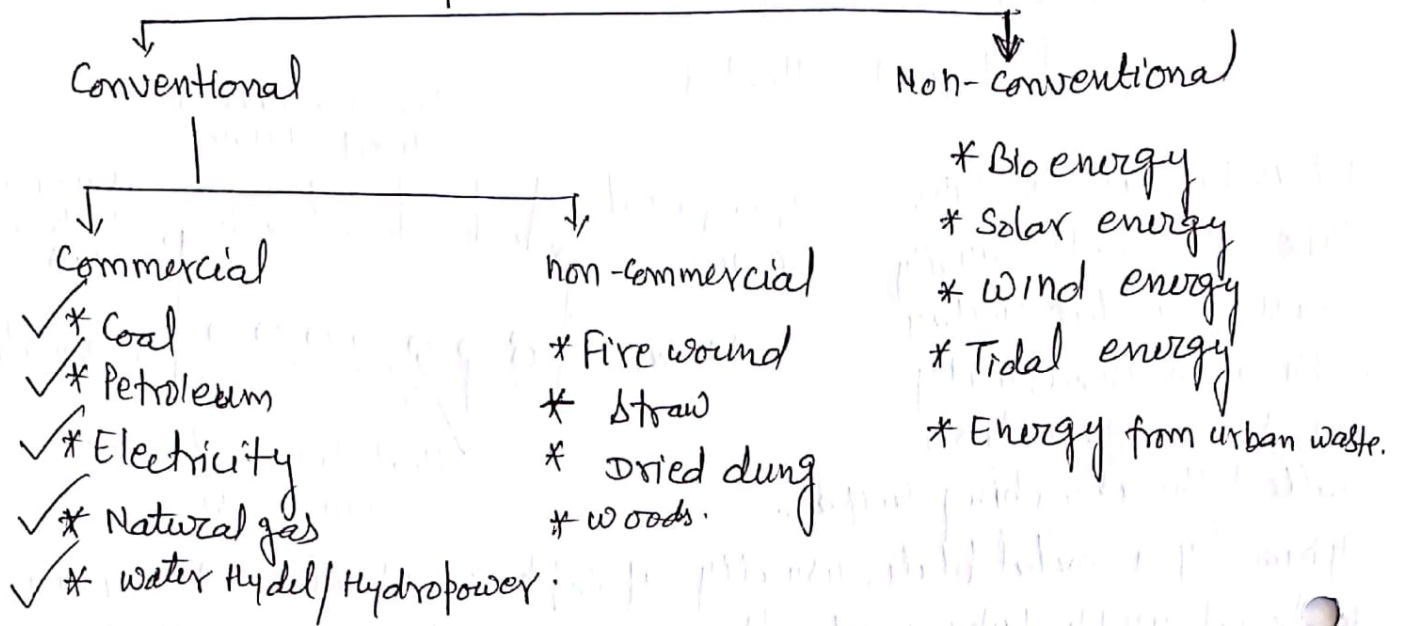 Conventional
Non-conventional
Commercial
* Coal
* Petroleum
* Electricity
* Natural gas
* water Hydel/Hydropower.
non-commercial
* Fire wound
* Straw
* Dried dung
* woods.
* Bio energy
* Solar energy
* Wind energy
* Tidal energy
* Energy from urban waste.